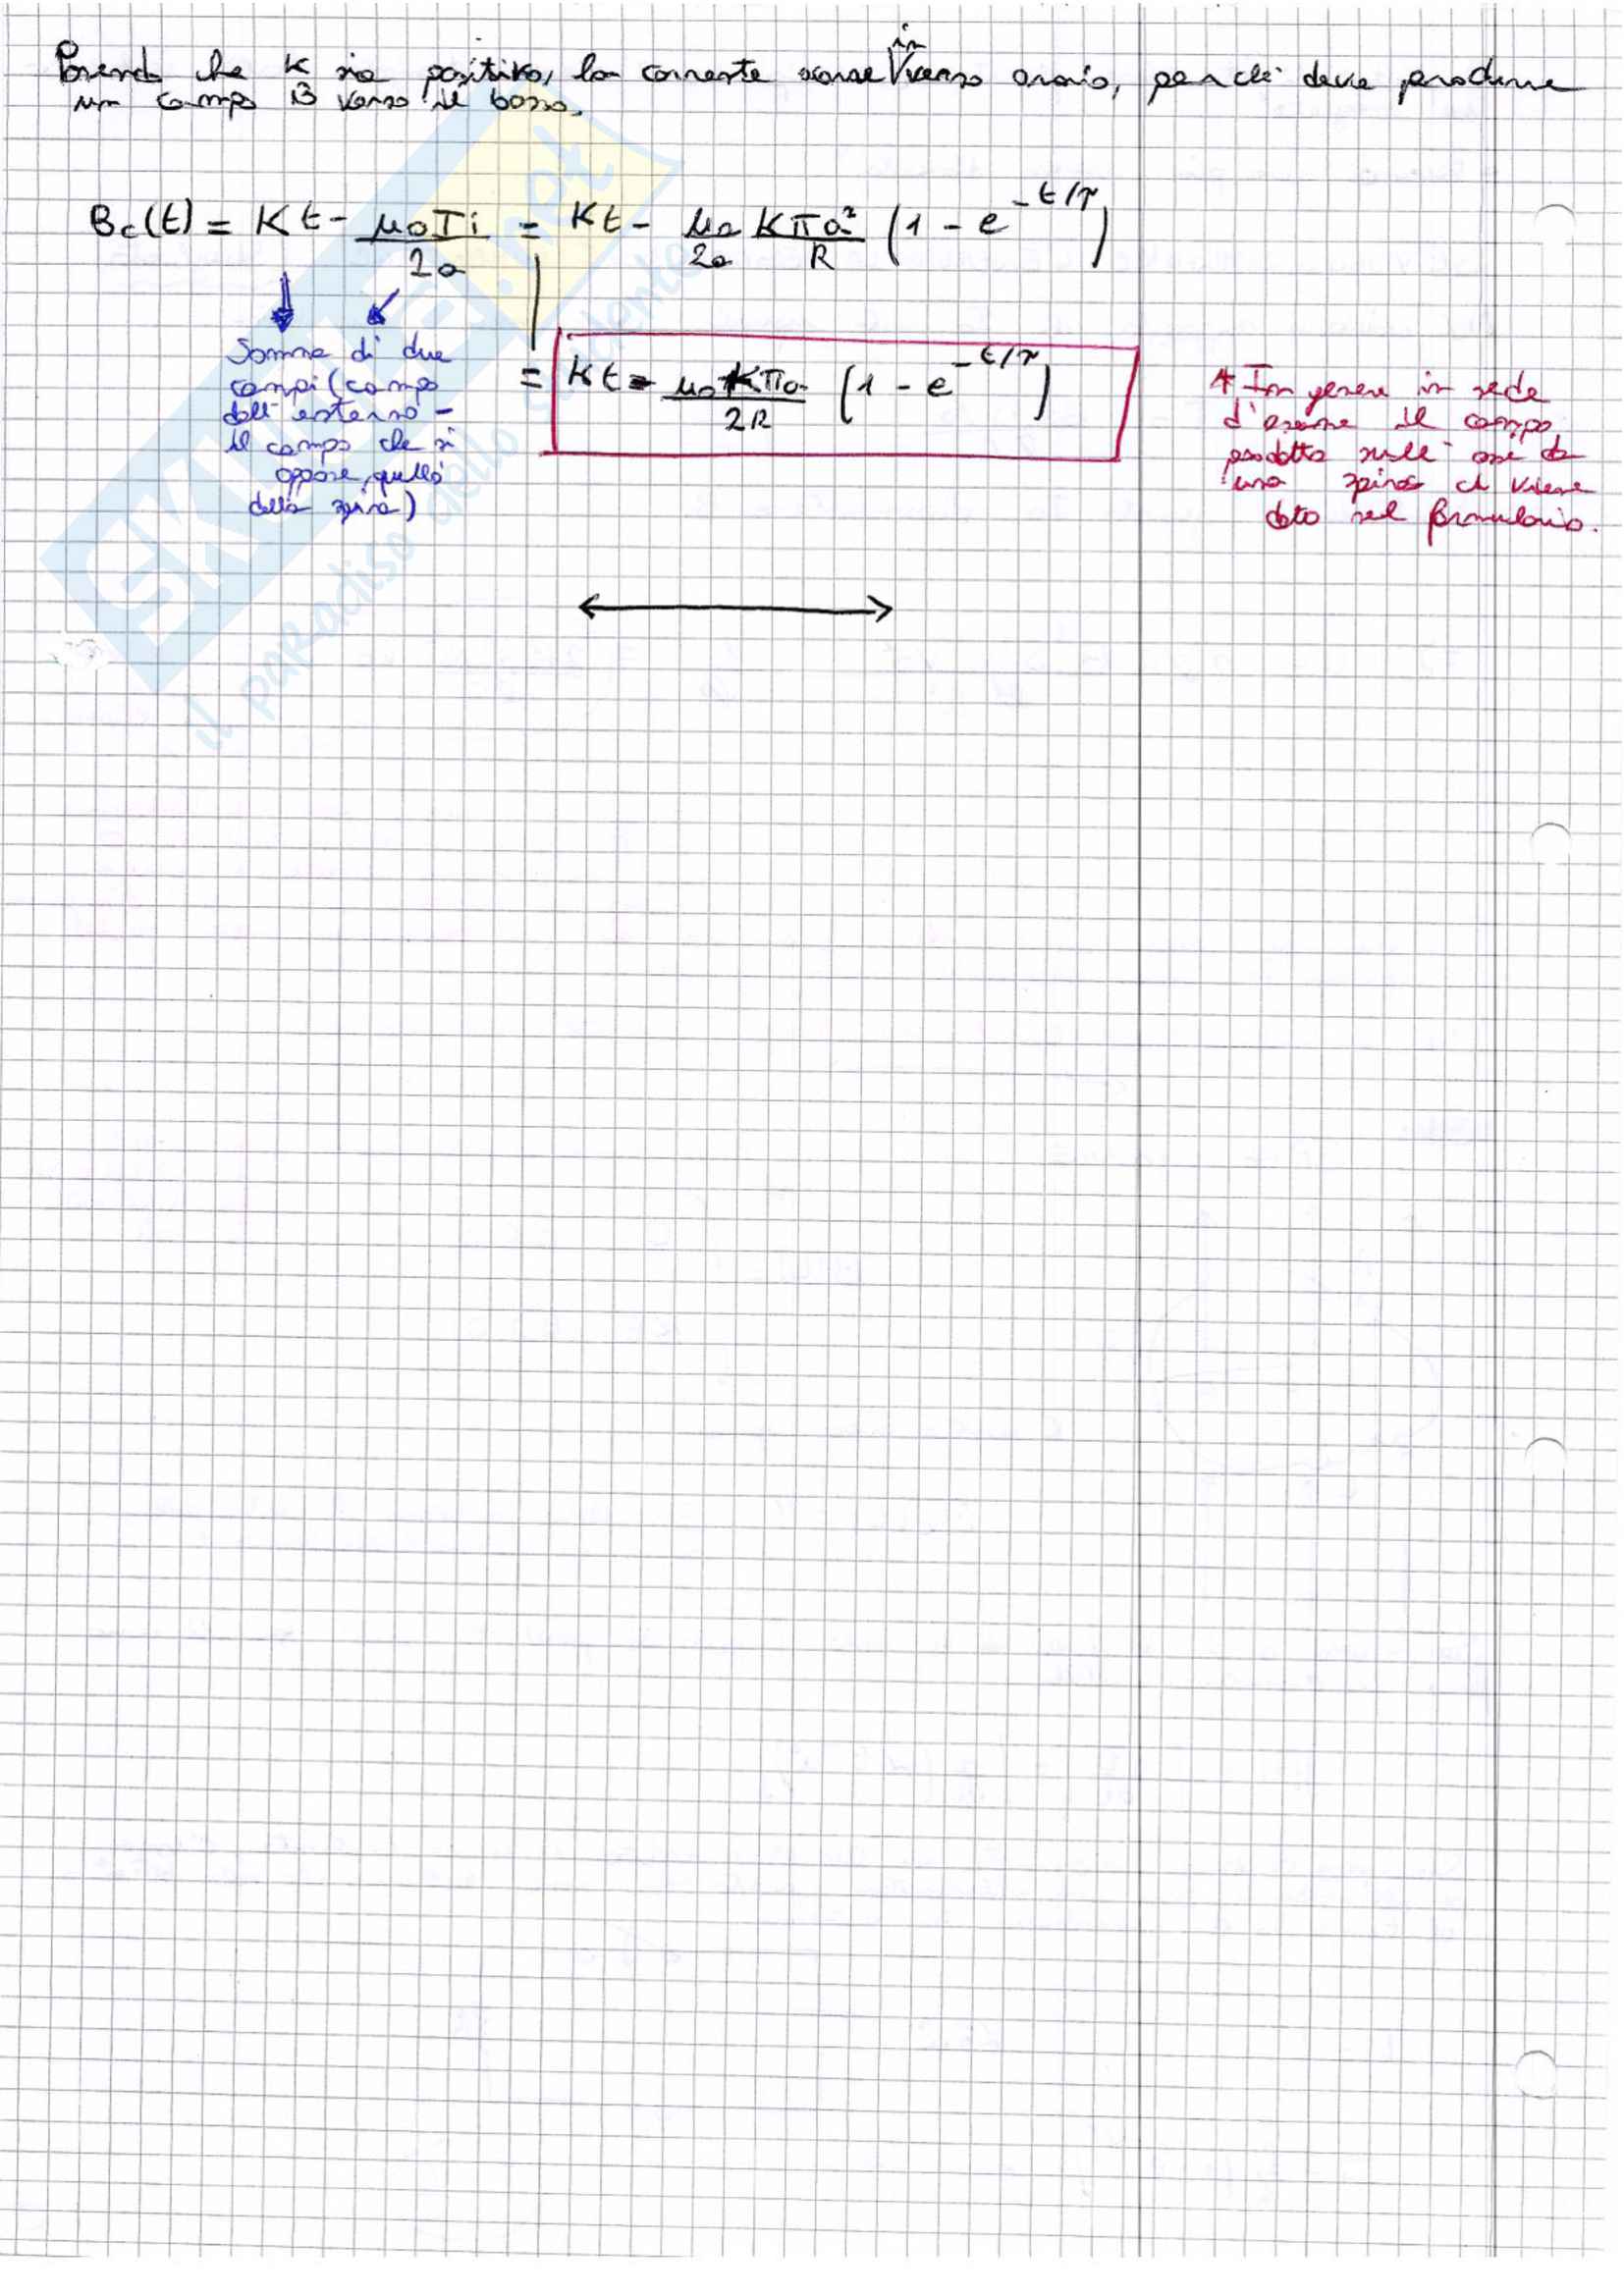 in
Ponendo che K sia positivo, la corrente scorre V verso orario, perché deve produrre
un campo B verso il basso.
Bc(t) = Kt - μ0Ii/2a = Kt - μ0/2a Kπa²/R (1 - e^-t/τ)
= Kt - μ0Kπa/2R (1 - e^-t/τ)
Somma di due
campi (campo
dall'esterno -
il campo che si
oppone, quello
della spira)
* In genere in sede
d'esame il campo
prodotto sull'asse da
una spira ci viene
dato nel formulario.
SKUOLA.net
il paradiso dello studente